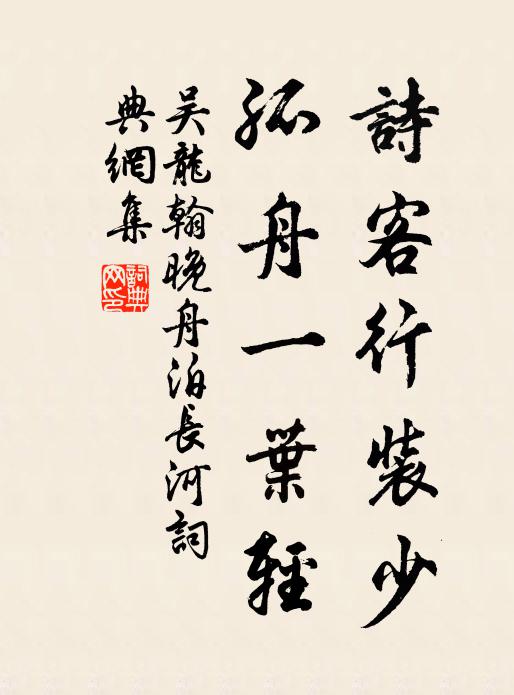 詩客行裝少
孤舟一葉輕
吴龍翰晚舟泊長河詞
典網集
詞典網印